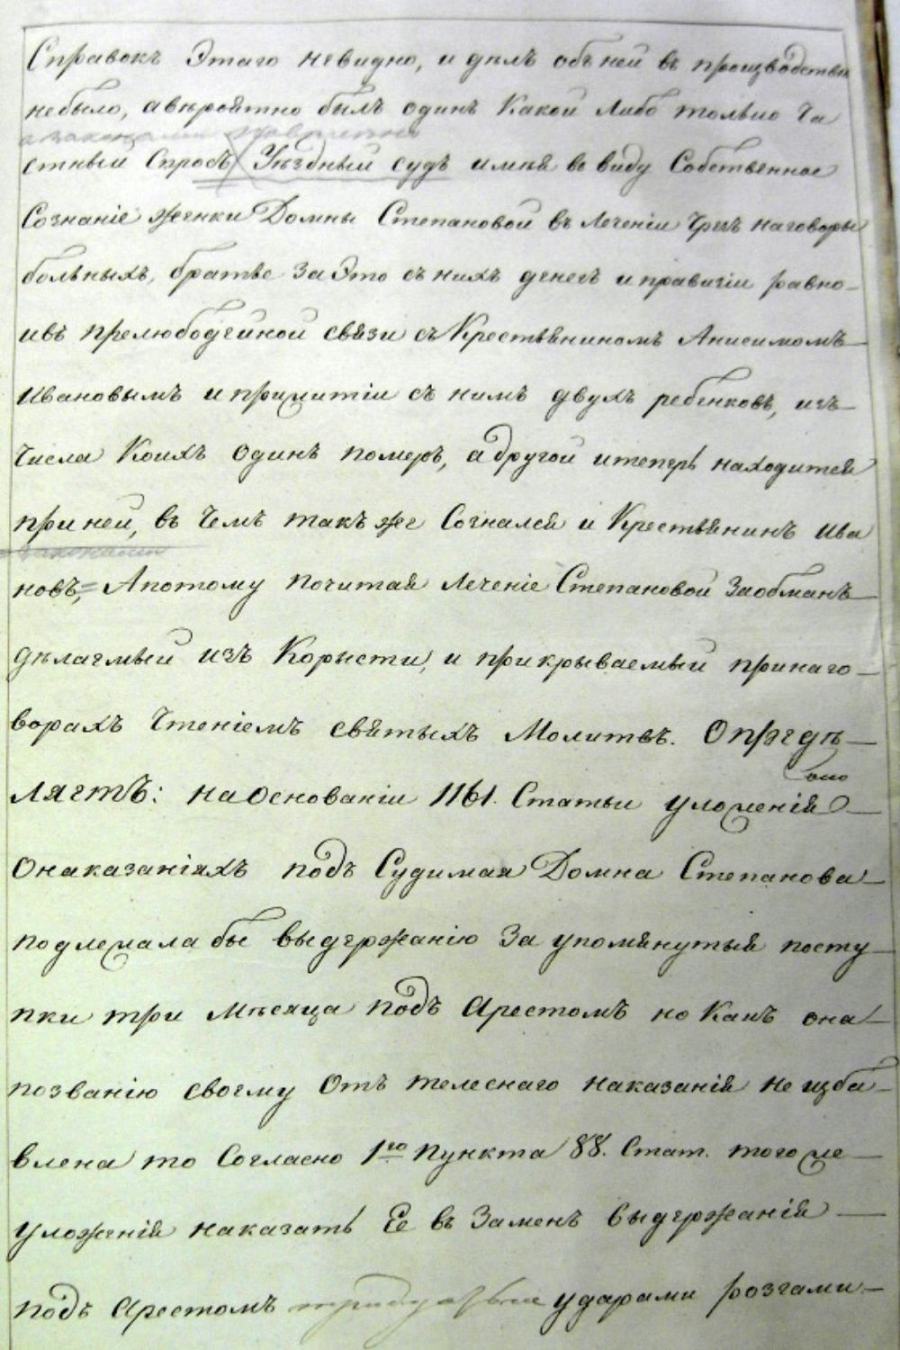 Справокъ Этаго невидно, и дѣлъ объ ней въ производствѣ
небыло, а вѣроятно былъ одинъ Какой либо только ча
стный Спросъ Уѣздный судъ имѣя въ виду Собственное
Сознаніе женки Домны Степановой въ леченіи Чрезъ наговоры
больныхъ, братье за Это съ нихъ денегъ и правизіи равно
ивъ прелюбодейной связи съ Крестьяниномъ Анисимомъ
Ивановымъ и прижитіи съ нимъ двухъ ребенковъ, изъ
Числа Коихъ одинъ померъ, а другой итеперь находится
при ней, въ Чемъ такъ же Сознался и Крестьянинъ Ива
новъ, Апотому почитая леченіе Степановой Заобманъ
дѣлаемый изъ Корысти, и прикрываемый принаго
ворахъ Чтеніемъ святыхъ Молитвъ. Опредѣ
ляетъ: на Основаніи 1161. Статьи уложенія
Онаказаніяхъ подъ Судимая Домна Степанова
подлежала бы выдержанію За упомянутый посту
пки три Мѣсяца подъ Арестомъ но Какъ она
позванію своему Отъ телеснаго наказанія не изба
влена то Согласно 1го Пункта 88. Стат. того же
уложенія наказать Ее въ Заменъ выдержанія
подъ Арестомъ ударами розгами